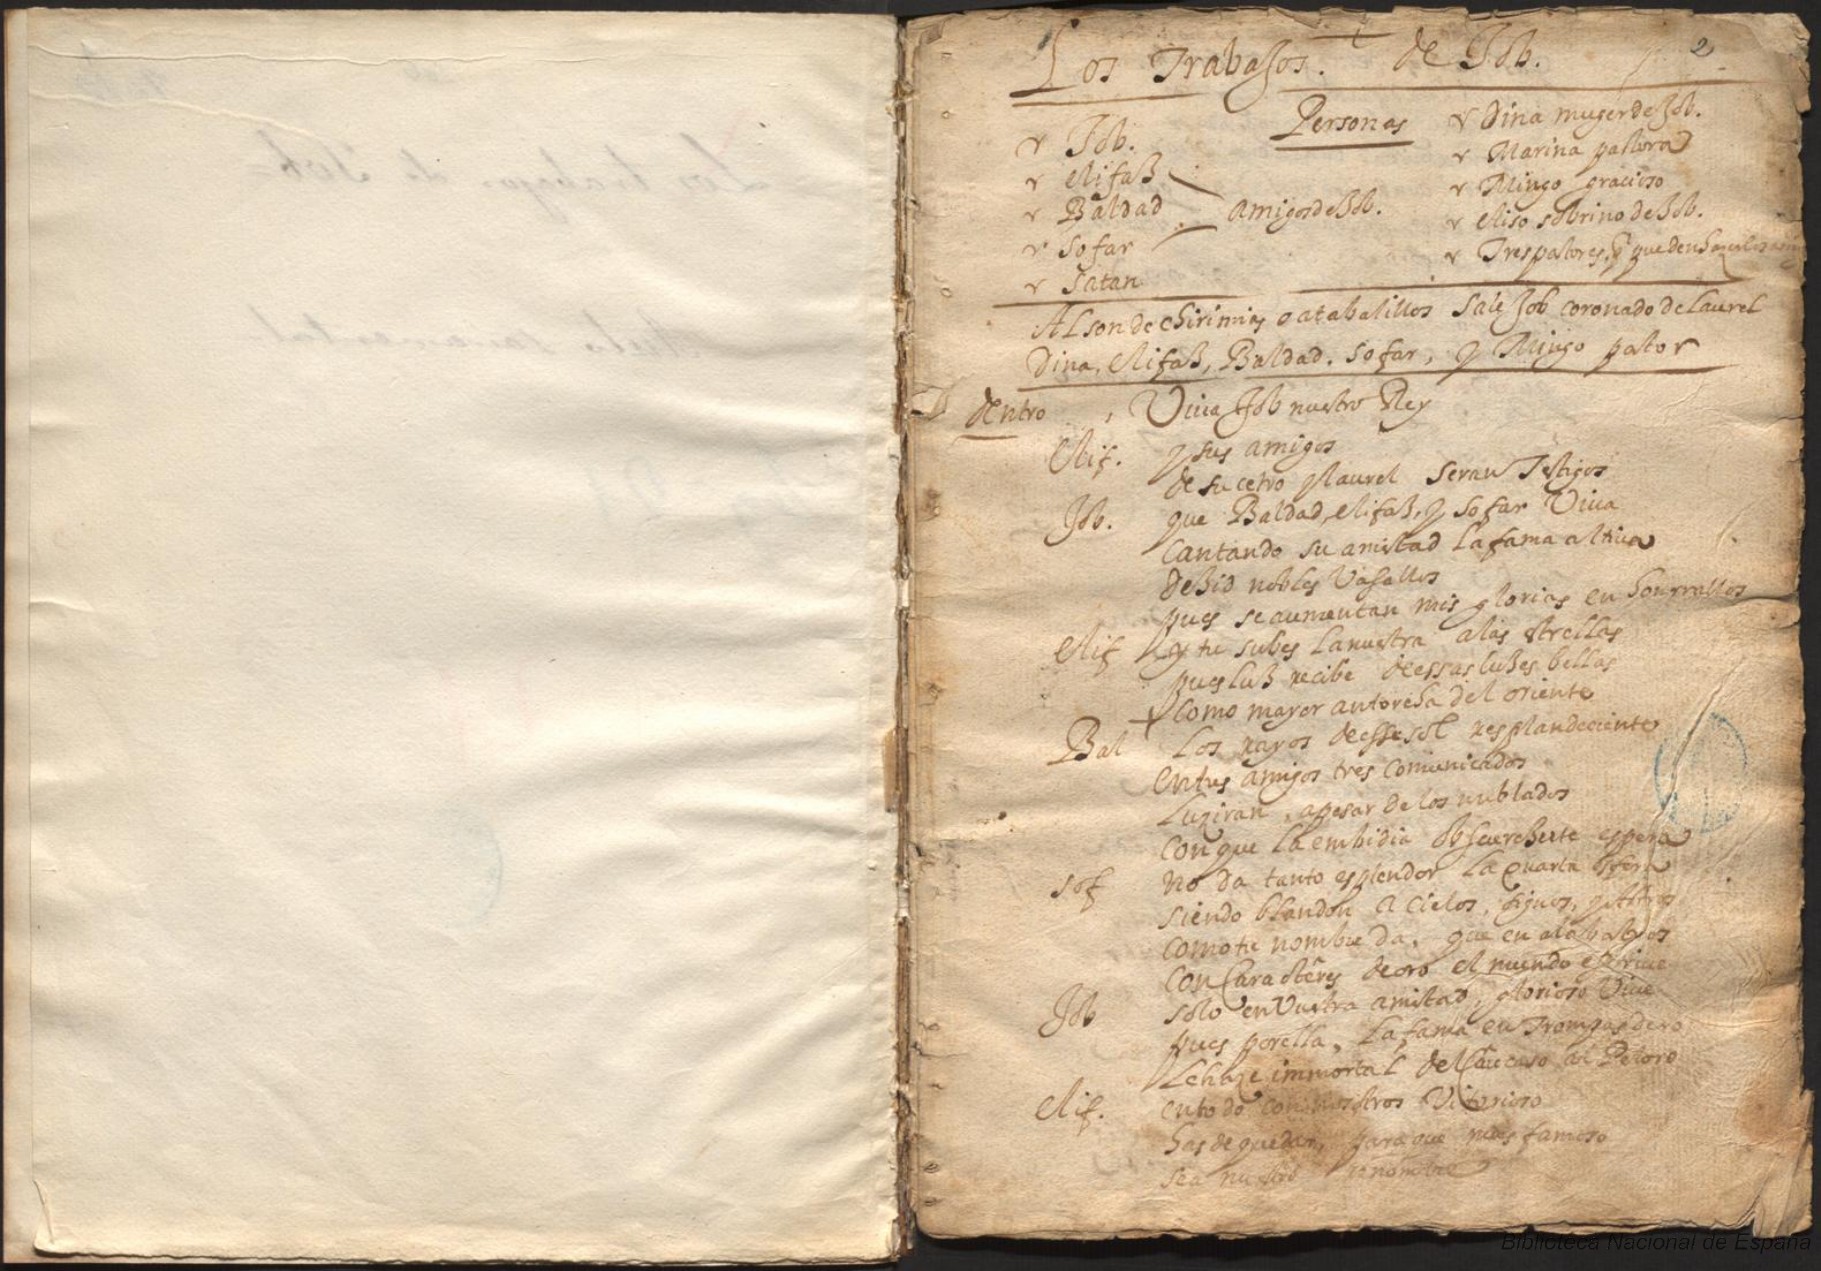 Los Trabajos. de Job. 2
Personas
Job.
elifaz
Baldad
sofar
amigos de Job.
satan
Dina muger de Job.
Marina pastora
Mingo gracioso
eliso sobrino de Job.
Tres pastores, q pueden
Al son de chirimias o atabalillos sale Job coronado de laurel
Dina, elifaz, Baldad. sofar, y Mingo pastor
dentro , Viua Job nuestro Rey
Elif. y sus amigos
de su cetro y laurel seran Testigos
Job. que Baldad, elifaz, y sofar Viua
cantando su amistad la fama altiua
dezid nobles Vasallos
pues se aumentan mis glorias en honrrallos
elif y tu subes la nuestra a las strellas
pues luz recibe de essas luzes bellas
como mayor antorcha del oriente
Bal Los rayos de esse sol resplandeciente
en tus amigos tres comunicados
Luziran, apesar de los nublados
con que la embidia obscurezerte espera
sof no da tanto esplendor la quarta esfera
siendo blandon a cielos, signos, y Astros
como tu nombre da. que en alabastros
con Caracteres de oro el mundo escriue
Job solo en Vuestra amistad, glorioso Viue
pues por ella, la fama en Trompas de oro
Le haze immortal del Caucaso al Peloro
elif. en todo con nosotros Vitorioso
has de quedar, para que mas famoso
sea nuestro renombre
Biblioteca Nacional de España